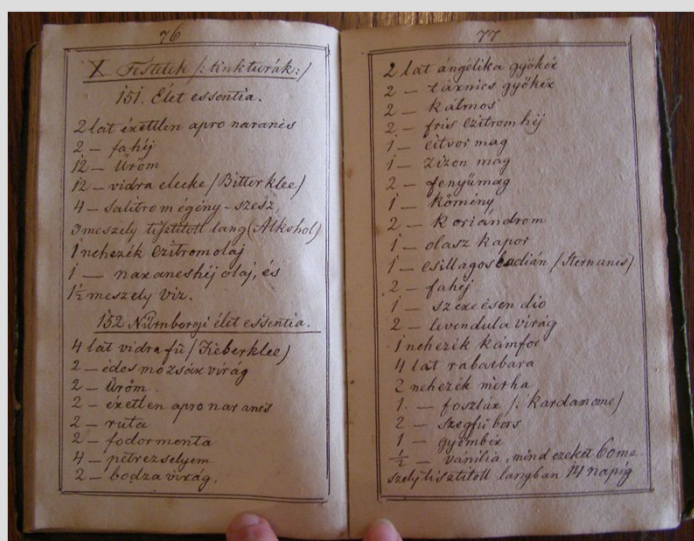 76
X Festetek /: tinkturák:/
151. Élet essentia.
2 lat éxetlen apro naranes
2 — fahéj
12 — Üröm
12 — vidra elecke /Bitterklee/
4 — salitrom égény-szesz
3 meszely tisztitott lang (Alkohol)
1 nehezék Czitromolaj
1 — naxaneshéj olaj, és
1½ meszely viz.
152 Nürnbergi élet essentia.
4 lat vidra fü /Fieberklee/
2 — édes mozsáx virág
2 — Üröm
2 — éxetlen apro naranes
2 — ruta
2 — fodormenta
4 — petrezselyem
2 — bodza virág.
77
2 lat angélika gyökéx
2 — táxnics gyökéx
2 — kálmos
2 — fris czitrom héj
1 — citvor mag
1 — zizon mag
2 — fenyümag
1 — Kömény
2 — Koriándrom
1 — olasz kapor
1 — csillagos badián /Sternanes/
2 — fahéj
1 — szexecsen dio
2 — levendula virág
1 nehezék kámfor
4 lat rabarbara
2 nehezék mirha
1. — foszláx /: Kardamome/
2 — szegfü bors
1 — gyömbéx
½ — vanilia, mind ezeket 6 me-
szely tisztitott langban 14 napig